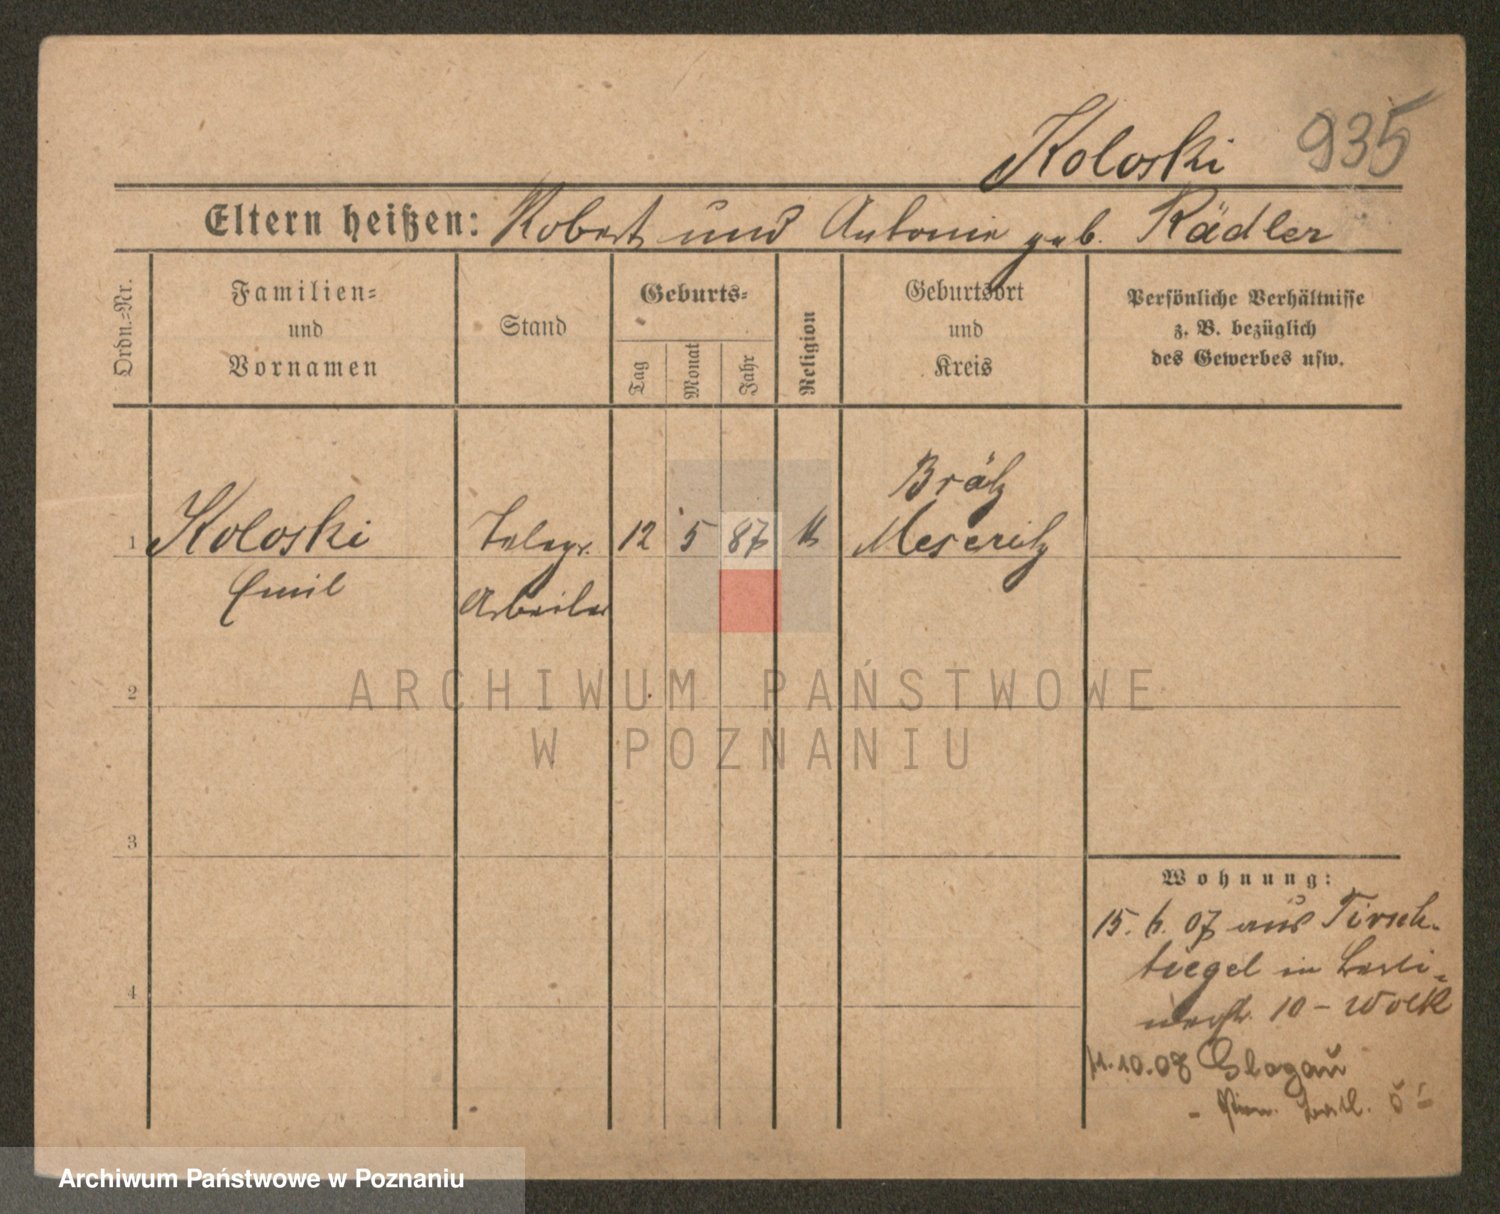 Koloski 935
Eltern heißen: Robert und Antonie geb. Rädler
Ordn.=Nr.
Familien=
und
Vornamen
Stand
Geburts=
Tag
Monat
Jahr
Religion
Geburtsort
und
Kreis
Persönliche Verhältnisse
z. B. bezüglich
des Gewerbes usw.
Brätz
1 Koloski Telegr. 12 5 87 Meseritz
Emil Arbeiter
2
ARCHIWUM PAŃSTWOWE
W POZNANIU
3
Wohnung:
15. 6. 07 aus Tirsch-
tiegel in Berli-
nerstr. 10 - Wolk
4
1.10.08 Glogau
Archiwum Państwowe w Poznaniu